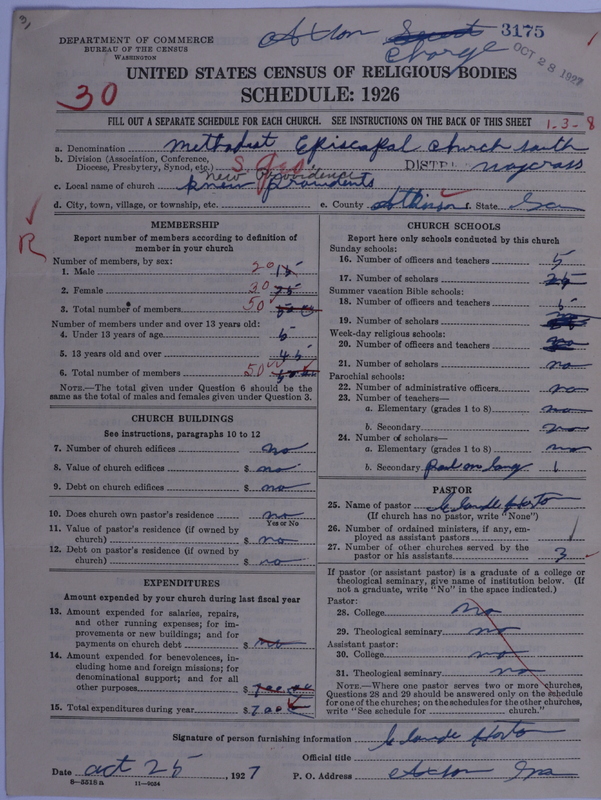 31
DEPARTMENT OF COMMERCE
BUREAU OF THE CENSUS
WASHINGTON
Axson
Charge
3175
OCT 28 1927
UNITED STATES CENSUS OF RELIGIOUS BODIES
SCHEDULE: 1926
30
FILL OUT A SEPARATE SCHEDULE FOR EACH CHURCH. SEE INSTRUCTIONS ON THE BACK OF THIS SHEET
1-3-8
a. Denomination Methodist Episcopal Church South
b. Division (Association, Conference, Diocese, Presbytery, Synod, etc.) S. Geo. DIST. Waycross
New Providence
c. Local name of church
d. City, town, village, or township, etc. e. County Atkinson f. State Ga
R
MEMBERSHIP
Report number of members according to definition of member in your church
Number of members, by sex:
1. Male 20 15
2. Female 30
3. Total number of members 50
Number of members under and over 13 years old:
4. Under 13 years of age 5
5. 13 years old and over 45
6. Total number of members 50
NOTE.—The total given under Question 6 should be the same as the total of males and females given under Question 3.
CHURCH BUILDINGS
See instructions, paragraphs 10 to 12
7. Number of church edifices no
8. Value of church edifices $ no
9. Debt on church edifices $ no
10. Does church own pastor's residence? no
Yes or No
11. Value of pastor's residence (if owned by church) $ no
12. Debt on pastor's residence (if owned by church) $ no
EXPENDITURES
Amount expended by your church during last fiscal year
13. Amount expended for salaries, repairs, and other running expenses; for improvements or new buildings; and for payments on church debt $ no
14. Amount expended for benevolences, including home and foreign missions; for denominational support; and for all other purposes $
15. Total expenditures during year $
CHURCH SCHOOLS
Report here only schools conducted by this church
Sunday schools:
16. Number of officers and teachers 5
17. Number of scholars 25
Summer vacation Bible schools:
18. Number of officers and teachers
19. Number of scholars
Week-day religious schools:
20. Number of officers and teachers no
21. Number of scholars no
Parochial schools:
22. Number of administrative officers no
23. Number of teachers—
a. Elementary (grades 1 to 8) no
b. Secondary no
24. Number of scholars—
a. Elementary (grades 1 to 8) no
b. Secondary 1
PASTOR
25. Name of pastor
(If church has no pastor, write "None")
26. Number of ordained ministers, if any, employed as assistant pastors
27. Number of other churches served by the pastor or his assistants 3
If pastor (or assistant pastor) is a graduate of a college or theological seminary, give name of institution below. (If not a graduate, write "No" in the space indicated.)
Pastor:
28. College no
29. Theological seminary no
Assistant pastor:
30. College no
31. Theological seminary no
NOTE.—Where one pastor serves two or more churches, Questions 28 and 29 should be answered only on the schedule for one of the churches; on the schedules for the other churches, write "See schedule for church."
Signature of person furnishing information
Official title
Date Oct 25, 1927 P. O. Address Axson Ga
8—5518a 11—9034